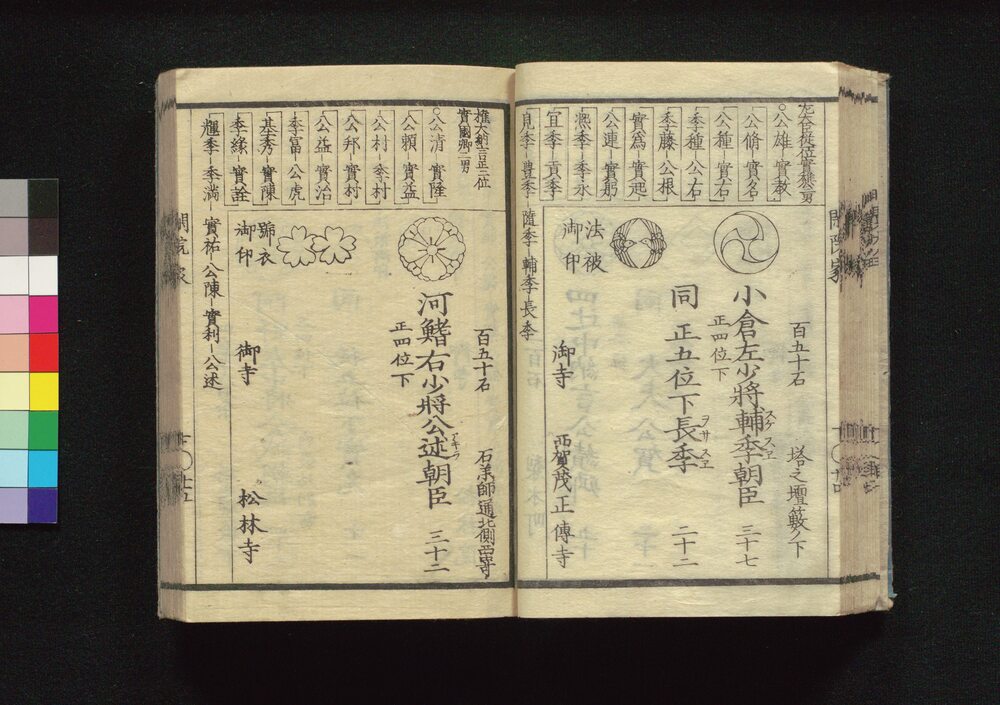 左大臣從一位實雄三男
公雄 實教
公脩 實名
公種 實右
季種 公右
季藤 公根
實爲 實起
公連 實躬
凞季 季永
宜季 貢季
見季 豊季 隨季 輔季 長季
百五十石
塔之壇藪ノ下
小倉左少將輔季朝臣
スケ スヱ
三十七
正四位下
同 正五位下長季
ヲサ スヱ
二十二
法被
御印
御寺
西賀茂正傳寺
閑院家
權大納言正三位
實國卿二男
公清 實隆
公頼 實益
公村 季村
公邦 實村
公益 實治
季富 公虎
基秀 實陳
季緣 實詮
輝季 季満 實祐 公陳 實利 公述
百五十石
石薬師通北側西
河鰭右少將公述朝臣
アキラ
三十二
正四位下
號衣
御印
御寺
松林寺
閑院家